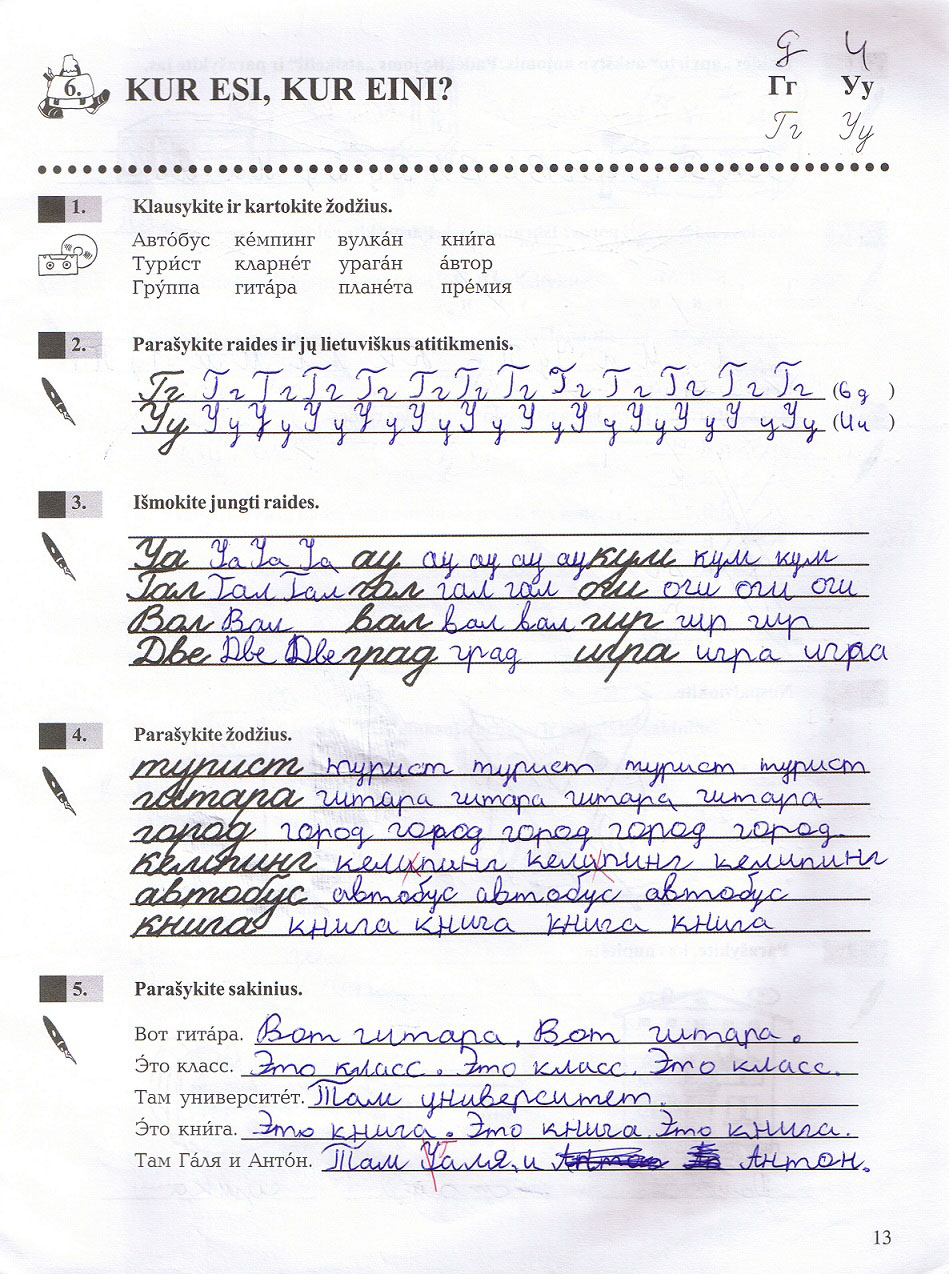 g ч
6. KUR ESI, KUR EINI? Гг Уу
Гг Уу
1. Klausykite ir kartokite žodžius.
Авто́бус ке́мпинг вулка́н кни́га
Тури́ст кларне́т урага́н а́втор
Гру́ппа гита́ра плане́та пре́мия
2. Parašykite raides ir jų lietuviškus atitikmenis.
Гг Гг Гг Гг Гг Гг Гг Гг Гг Гг Гг Гг Гг (G g )
Уу Уу Уу Уу Уу Уу Уу Уу Уу Уу Уу Уу Уу (Uu )
3. Išmokite jungti raides.
Уа Уа Уа Уа ау ау ау ау ау кум кум кум
Гал Гал Гал гал гал гал оги оги оги оги
Вал Вал вал вал вал гир гир гир
Две Две Две град град игра игра игра
4. Parašykite žodžius.
турист турист турист турист турист
гитара гитара гитара гитара гитара
город город город город город город.
кемпинг кемпинг кемпинг кемпинг
автобус автобус автобус автобус
книга книга книга книга книга
5. Parašykite sakinius.
Вот гита́ра. Вот гитара. Вот гитара.
Э́то класс. Это класс. Это класс. Это класс.
Там университе́т. Там университет.
Э́то кни́га. Это книга. Это книга. Это книга.
Там Га́ля и Анто́н. Там Галя и Антон.
13